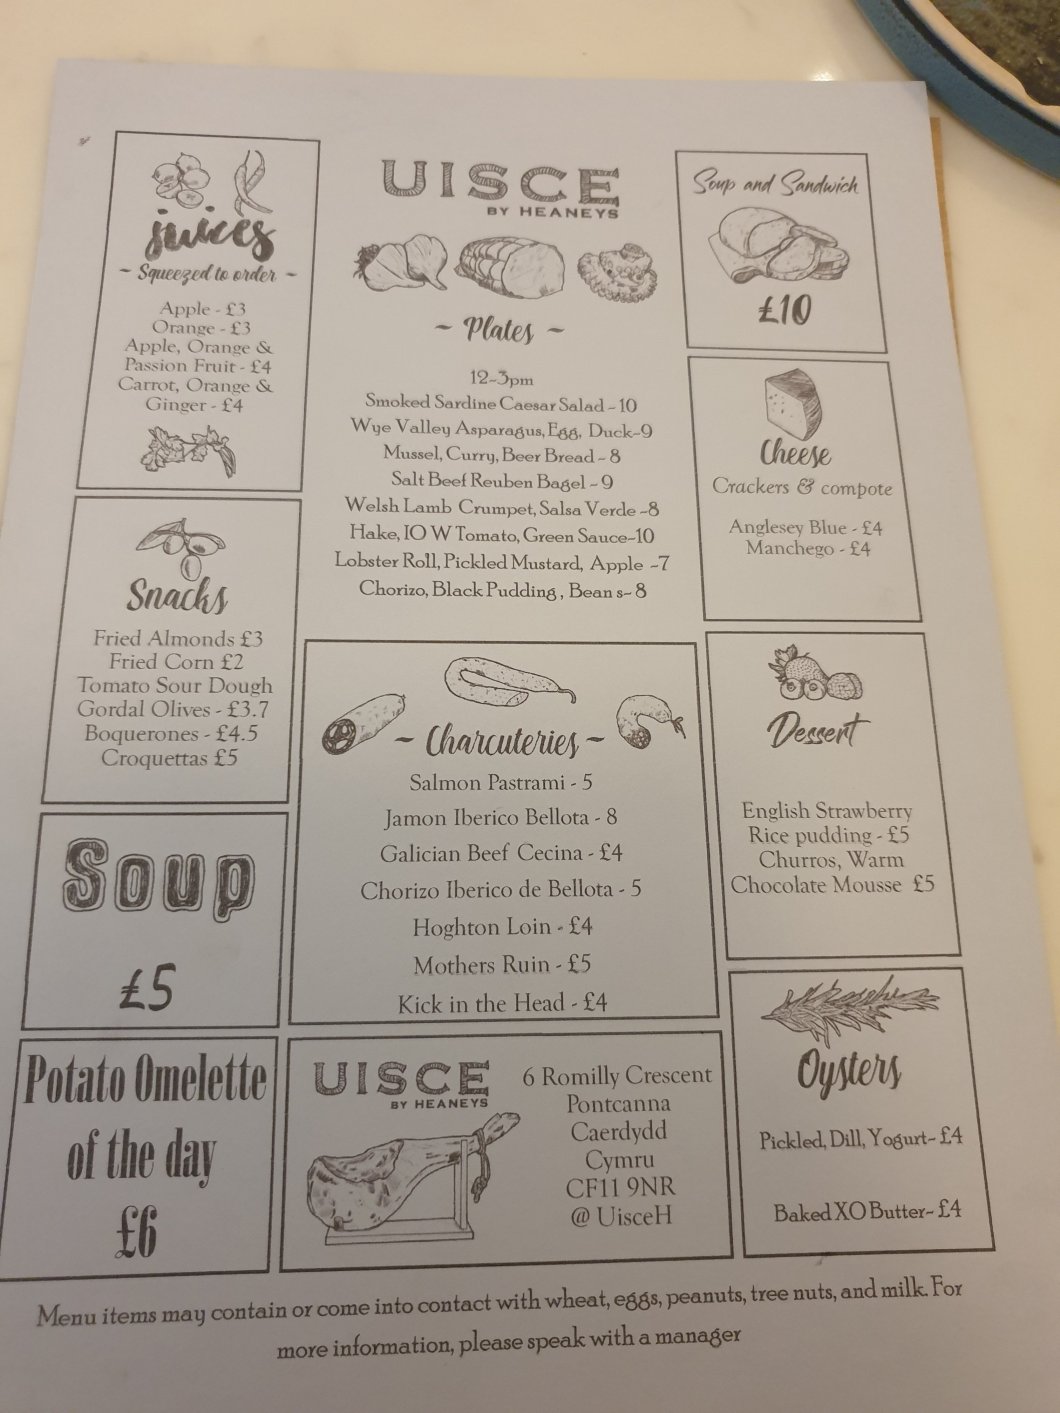 juices
~ Squeezed to order ~
Apple - £3
Orange - £3
Apple, Orange &
Passion Fruit - £4
Carrot, Orange &
Ginger - £4
UISCE
BY HEANEYS
~ Plates ~
12-3pm
Smoked Sardine Caesar Salad - 10
Wye Valley Asparagus, Egg, Duck-9
Mussel, Curry, Beer Bread - 8
Salt Beef Reuben Bagel - 9
Welsh Lamb Crumpet, Salsa Verde -8
Hake, IO W Tomato, Green Sauce-10
Lobster Roll, Pickled Mustard, Apple -7
Chorizo, Black Pudding , Bean s- 8
Soup and Sandwich
£10
Cheese
Crackers & compote
Anglesey Blue - £4
Manchego - £4
Snacks
Fried Almonds £3
Fried Corn £2
Tomato Sour Dough
Gordal Olives - £3.7
Boquerones - £4.5
Croquettas £5
~ Charcuteries ~
Salmon Pastrami - 5
Jamon Iberico Bellota - 8
Galician Beef Cecina - £4
Chorizo Iberico de Bellota - 5
Hoghton Loin - £4
Mothers Ruin - £5
Kick in the Head - £4
Dessert
English Strawberry
Rice pudding - £5
Churros, Warm
Chocolate Mousse £5
Soup
£5
Oysters
Pickled, Dill, Yogurt- £4
Baked XO Butter- £4
Potato Omelette
of the day
£6
UISCE
BY HEANEYS
6 Romilly Crescent
Pontcanna
Caerdydd
Cymru
CF11 9NR
@ UisceH
Menu items may contain or come into contact with wheat, eggs, peanuts, tree nuts, and milk. For
more information, please speak with a manager